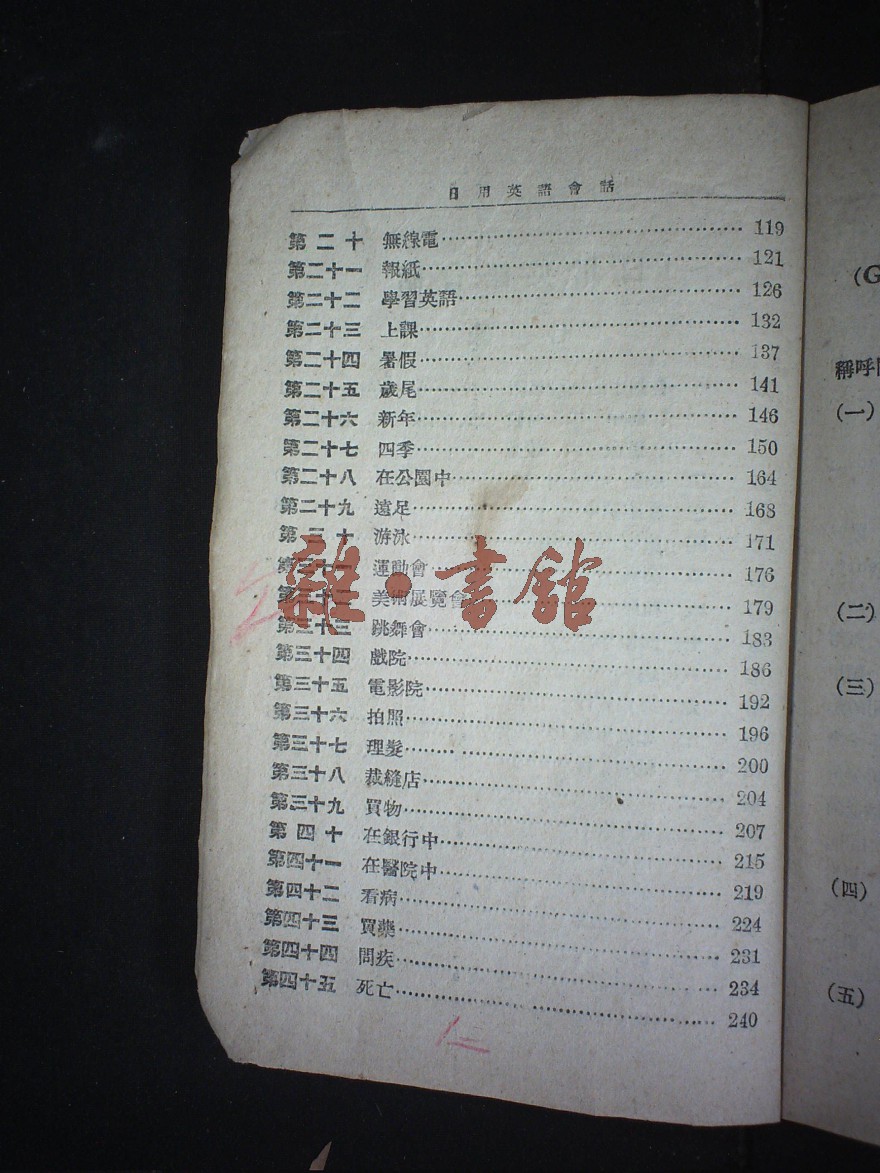 日用英語會話
第二十 無線電 119
第二十一 報紙 121
第二十二 學習英語 126
第二十三 上課 132
第二十四 暑假 137
第二十五 歲尾 141
第二十六 新年 146
第二十七 四季 150
第二十八 在公園中 164
第二十九 遠足 168
第三十 游泳 171
第三十一 運動會 176
第三十二 美術展覽會 179
第三十三 跳舞會 183
第三十四 戲院 186
第三十五 電影院 192
第三十六 拍照 196
第三十七 理髮 200
第三十八 裁縫店 204
第三十九 買物 207
第四十 在銀行中 215
第四十一 在醫院中 219
第四十二 看病 224
第四十三 買藥 231
第四十四 問疾 234
第四十五 死亡 240
雜·書館
(G
稱呼
(一)
(二)
(三)
(四)
(五)